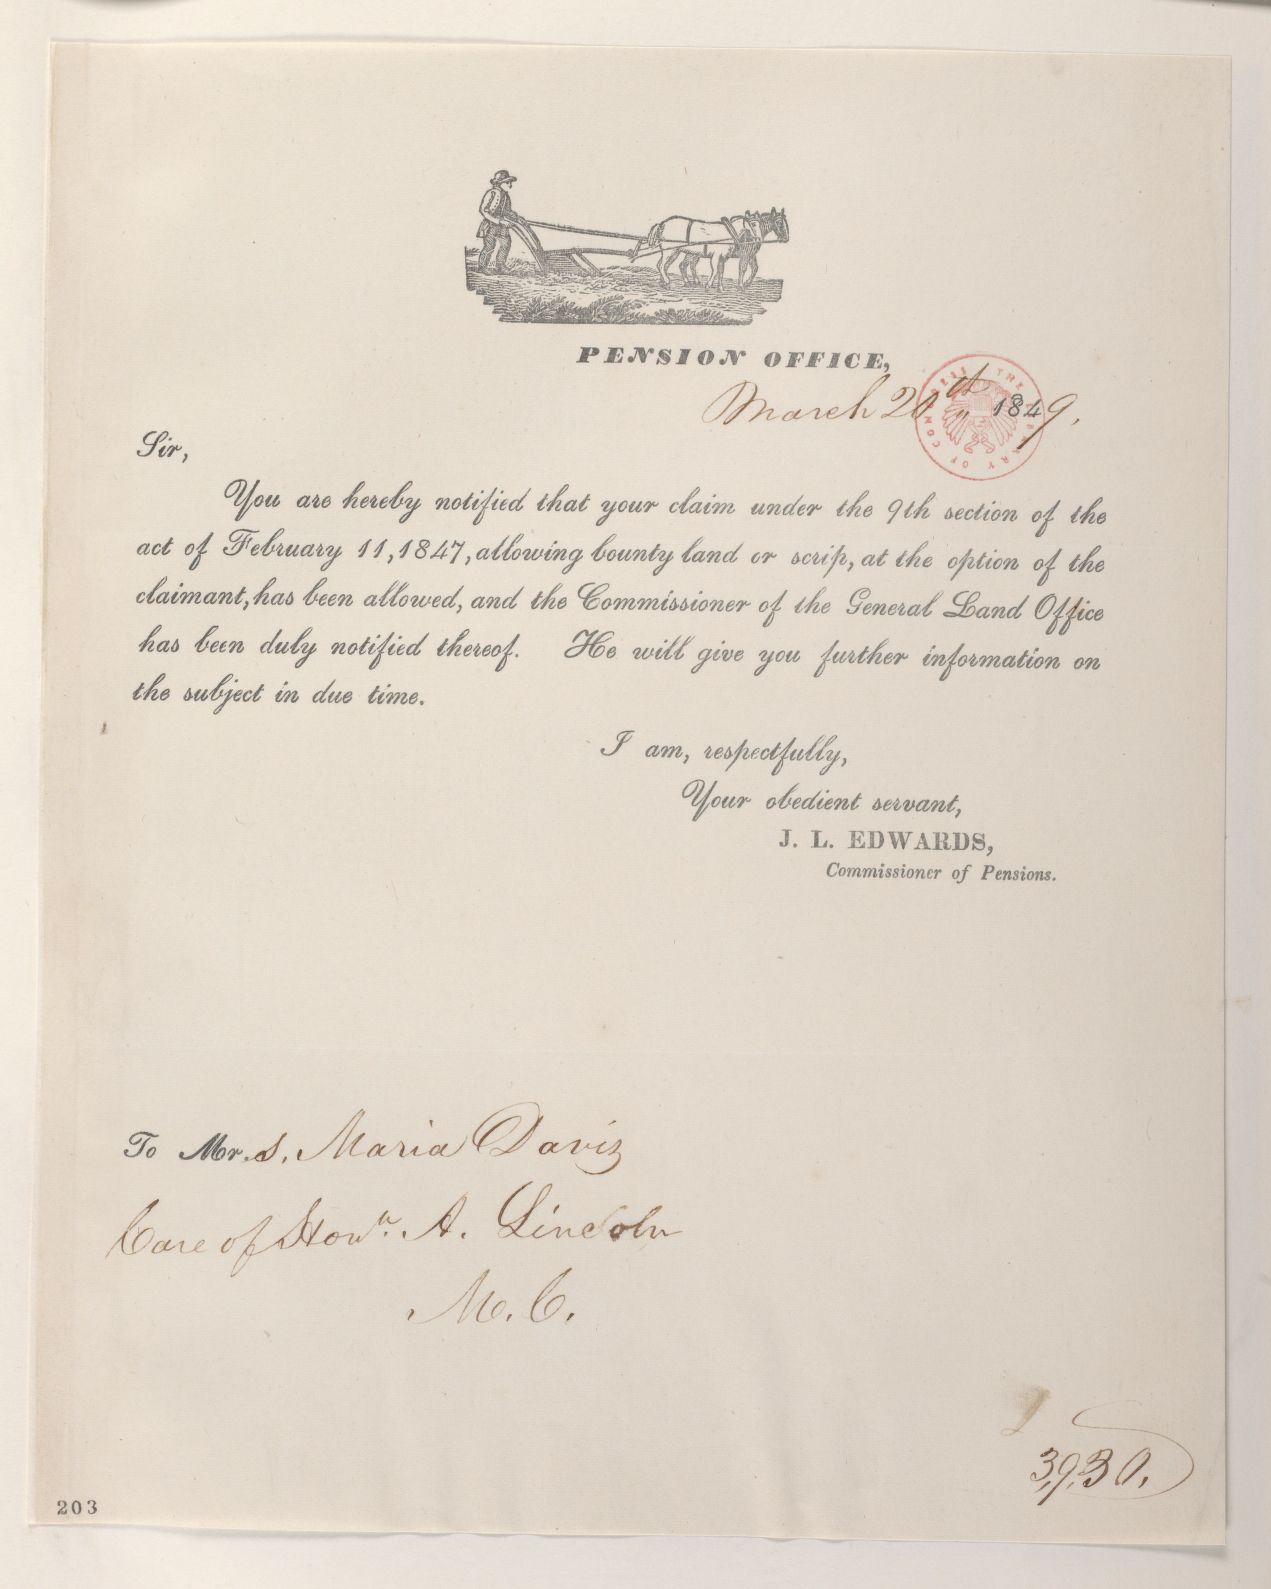 PENSION OFFICE,
March 20th 1849.
Sir,
You are hereby notified that your claim under the 9th section of the
act of February 11, 1847, allowing bounty land or scrip, at the option of the
claimant, has been allowed, and the Commissioner of the General Land Office
has been duly notified thereof. He will give you further information on
the subject in due time.
I am, respectfully,
Your obedient servant,
J. L. EDWARDS,
Commissioner of Pensions.
To Mr.s. Maria Davis
Care of Hon. A. Lincoln
M. C.
3,930.
203
THE LIBRARY OF CONGRESS